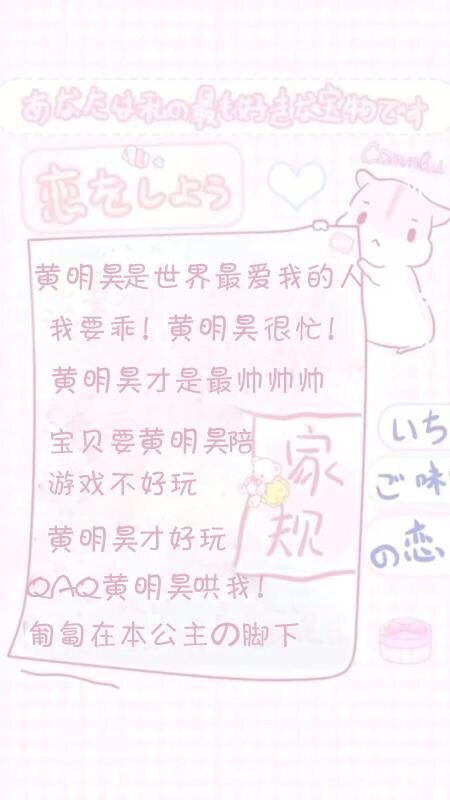 あなたは私の最も好きな宝物です
恋をしよう
黄明昊是世界最爱我的人
我要乖！黄明昊很忙！
黄明昊才是最帅帅帅
宝贝要黄明昊陪
游戏不好玩
黄明昊才好玩
QAQ黄明昊哄我！
匍匐在本公主の脚下
家规
いち
ご味
の恋